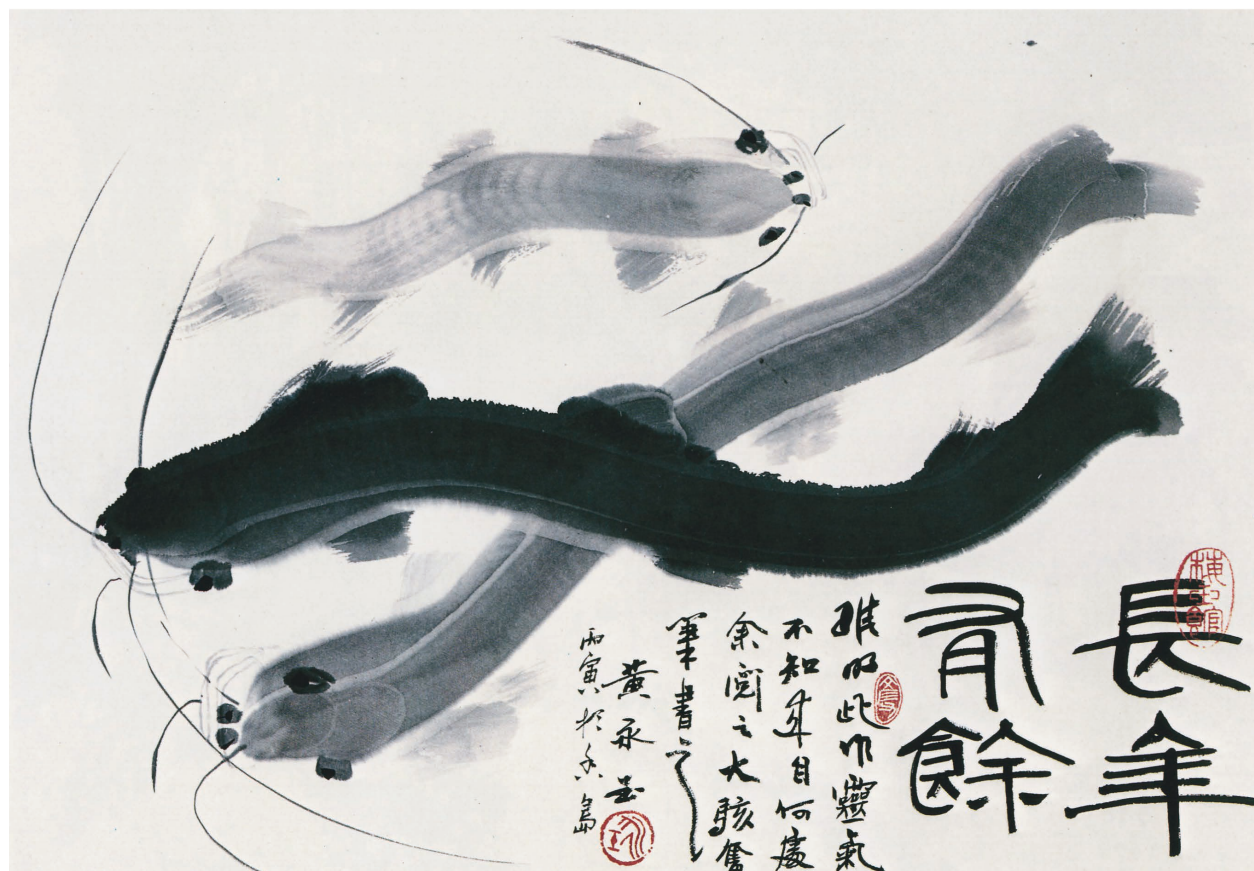 長年
有餘
維明此作靈氣
不知來自何處
余閱之大駭奮
筆書之
黃永玉
丙寅於香島